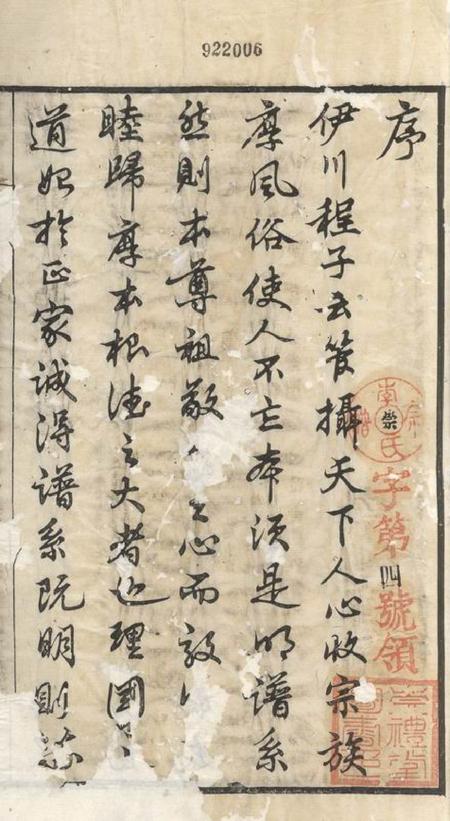 922006
序
崇字第四號領
伊川程子云管攝天下人心收宗族
厚風俗使人不亡本須是明譜系
然則本尊祖敬之心而敦
睦歸厚本根德之大者也理國之
道始於正家誠得譜系既明則